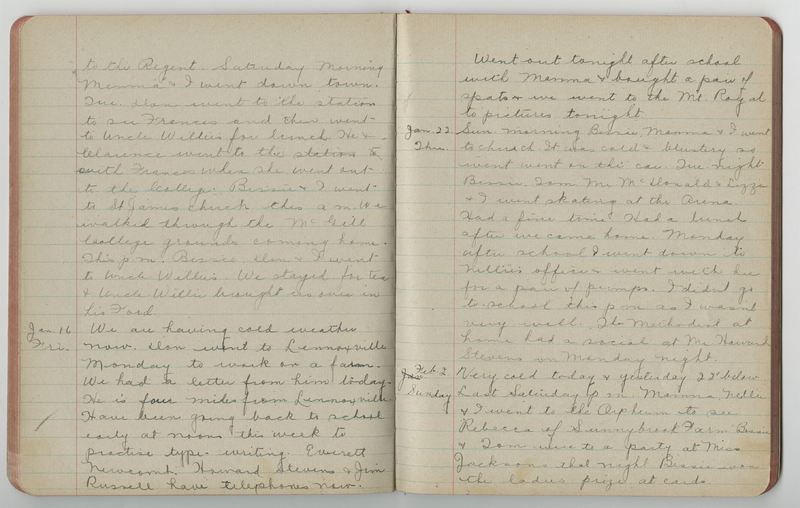 to the Regent. Saturday Morning
Mamma & I went down town.
Tue. Don went to the station
to see Frances and then went
to Uncle Willies for lunch. He &
Clarence went to the station to
with Frances when she went out
to the College. Bessie & I went
to St James church this a.m. We
walked through the McGill
College grounds coming home.
This p.m. Bessie, Don & I went
to Uncle Willies. We stayed for tea
& Uncle Willie brought us over in
his Ford.
Jan. 16 We are having cold weather
Fri. now. Don went to Lennoxville
Monday to work on a farm.
We had a letter from him today.
He is four miles from Lennoxville.
Have been going back to school
early at noons this week to
practise type-writing. Everett
Newcomb, Howard Stevens & Jim
Russell have telephones now.
Went out tonight after school
with Mamma & bought a pair of
spats & we went to the Mt. Royal
to pictures tonight.
Jan. 22 Sun. morning Bessie, Mamma & I went
Thu. to church. It was cold & blustery so
went on the car. Tue night
Bessie, Tom, Mr McDonald & Lizze
& I went skating at the Arena.
Had a fine time. Had a lunch
after we came home. Monday
after school I went down to
Nellies office & went with her
for a pair of pumps. I didn't go
to school this p.m. as I wasn't
very well. The Methodist at
home had a social at Mr Howard
Stevens on Monday night.
Feb. 2 Very cold today & yesterday 22° below.
Sunday Last Saturday p.m. Mamma, Nellie
& I went to the Orpheum to see
Rebecca of Sunnybrook Farm. Bessie
& Tom were to a party at Miss
Jacksons that night Bessie won
the ladies prize at cards.